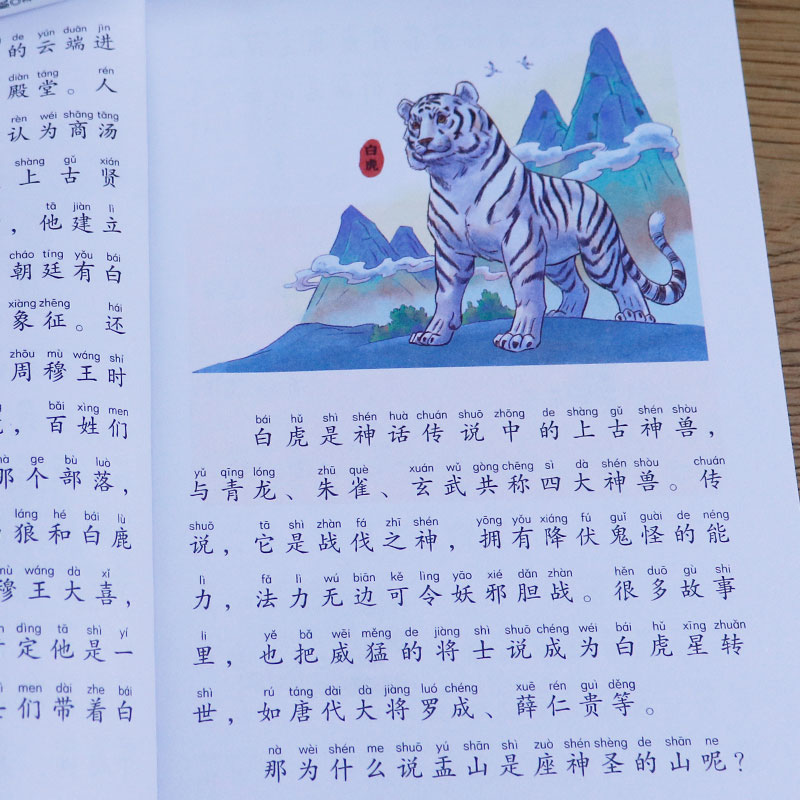 de yún duān jìn
的云端进
diàn táng rén
殿堂。人
rèn wéi shāng tāng
认为商汤
shàng gǔ xián
上古贤
tā jiàn lì
，他建立
cháo tíng yǒu bái
朝廷有白
xiàng zhēng hái
象征。还
zhōu mù wáng shí
周穆王时
bǎi xìng men
，百姓们
ge bù luò
那个部落，
láng hé bái lù
狼和白鹿
wáng dà xǐ
穆王大喜，
dìng tā shì yí
定他是一
men dài zhe bái
们带着白
白虎
bái hǔ shì shén huà chuán shuō zhōng de shàng gǔ shén shòu
白虎是神话传说中的上古神兽，
yǔ qīng lóng zhū què xuán wǔ gòng chēng sì dà shén shòu chuán
与青龙、朱雀、玄武共称四大神兽。传
shuō tā shì zhàn fá zhī shén yōng yǒu xiáng fú guǐ guài de néng
说，它是战伐之神，拥有降伏鬼怪的能
lì fǎ lì wú biān kě lìng yāo xié dǎn zhàn hěn duō gù shi
力，法力无边可令妖邪胆战。很多故事
li yě bǎ wēi měng de jiàng shì shuō chéng wéi bái hǔ xīng zhuǎn
里，也把威猛的将士说成为白虎星转
shì rú táng dài dà jiàng luó chéng xuē rén guì děng
世，如唐代大将罗成、薛仁贵等。
nà wèi shén me shuō yú shān shì zuò shén shèng de shān ne
那为什么说盂山是座神圣的山呢？